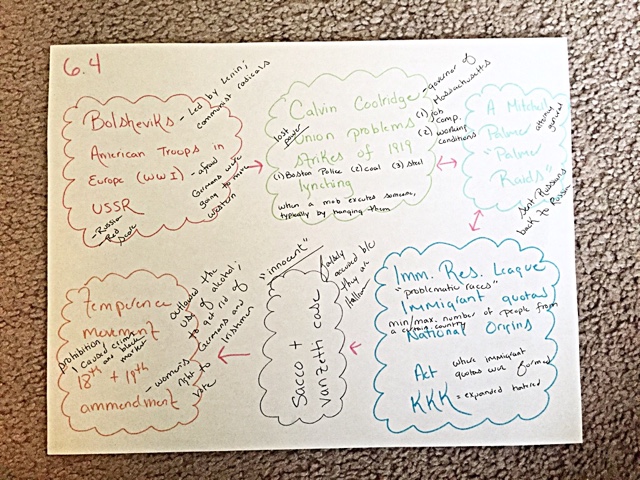 6.4
Bolsheviks
- Led by Lenin;
communist radicals
American Troops in
Europe (WWI)
- afraid
Germans were
going to move
western
USSR
- Russian
Red
Scare
Calvin Coolridge
- governor of
Massachusetts
lost
power
Union problems
(1) job
comp.
(2) working
conditions
strikes of 1919
(1) Boston Police (2) Coal (3) Steel
lynching
when a mob excutes someone,
typically by hanging them
A Mitchell
Palmer
attorney
general
"Palmer
Raids"
sent Russians
back to Russia
Imm. Res. League
"problematic races"
Immigrant quotas
min/max. number of people from
a certain country
National Origins
Act
where immigrant
quotas were formed
KKK = expanded hatred
Sacco +
Vanzetti case
"innocent"
falsely
accused b/c
they are
Italian
temperence
movement
outlawed the
use of alcohol;
to get rid of
Germans and
Irishmen
prohibition
caused crime
and black
market
18th + 19th
ammendment
- women's
right to
vote